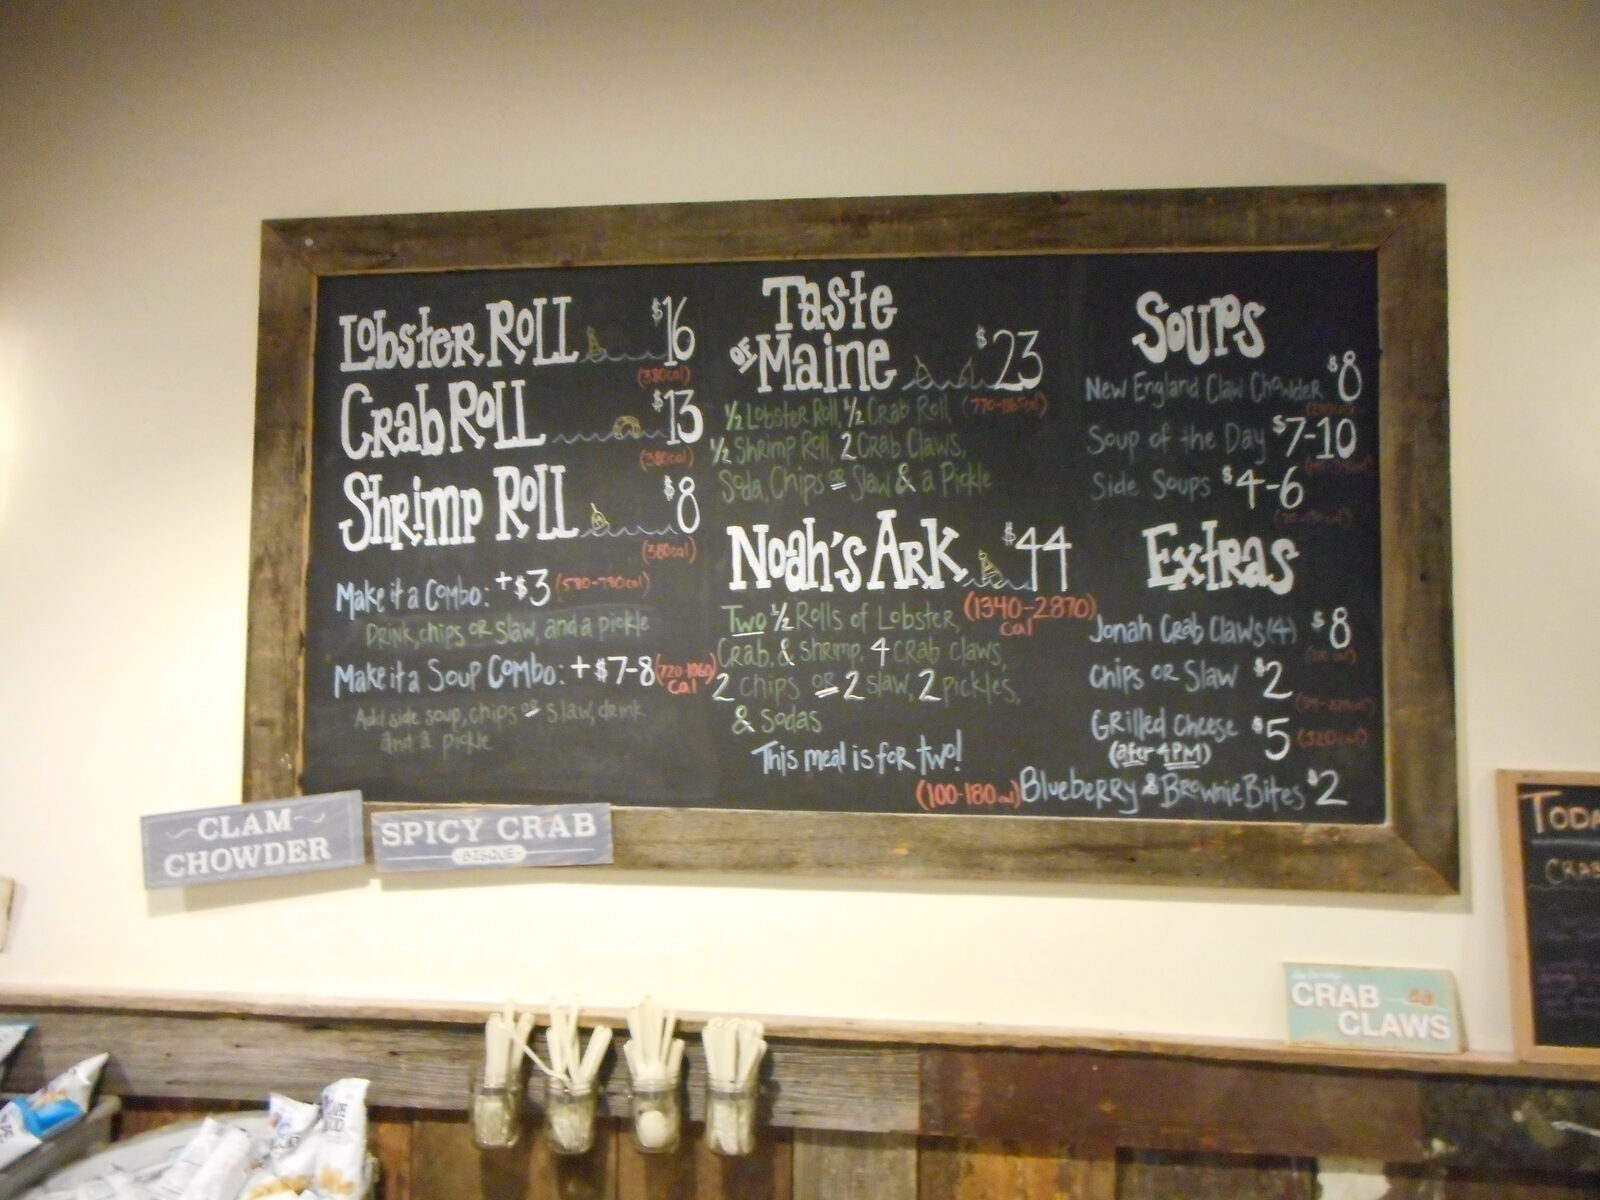 Lobster Roll $16
(380cal)
Crab Roll $13
(380cal)
Shrimp Roll $8
(380cal)
Make it a Combo: +$3 (580-780cal)
Drink, chips or slaw, and a pickle
Make it a Soup Combo: +$7-8 (720-1060)
Cal
Add side soup, chips or slaw, drink
and a pickle
Taste
of Maine $23
½ Lobster Roll, ½ Crab Roll,
½ Shrimp Roll, 2 Crab Claws,
Soda, Chips or Slaw & a Pickle
Noah's Ark $44
Two ½ Rolls of Lobster, (1340-2870)
Cal
Crab, & shrimp, 4 crab claws,
2 chips or 2 slaw, 2 pickles,
& Sodas
This meal is for two!
Soups
New England Clam Chowder $8
Soup of the Day $7-10
Side Soups $4-6
Extras
Jonah Crab Claws (4) $8
Chips or Slaw $2
Grilled Cheese $5 (320cal)
(after 4PM)
(100-180cal) Blueberry & Brownie Bites $2
CLAM
CHOWDER
SPICY CRAB
BISQUE
CRAB
CLAWS
TODA
CRAB